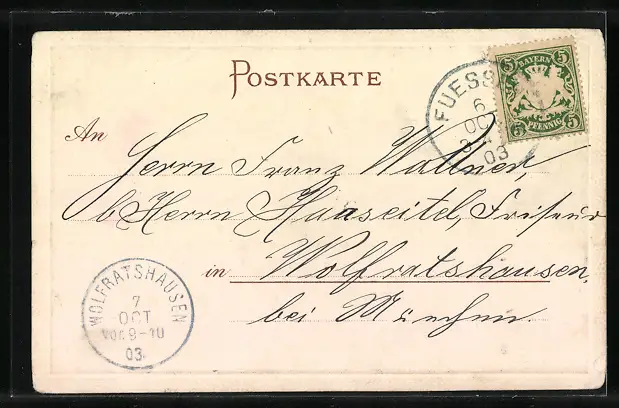 POSTKARTE
5 BAYERN 5
5 PFENNIG 5
FUESS
6
OCT
03
An
Herrn Franz Wallner,
b/Herrn Haaseitel, Friseur
in Wolfratshausen,
bei München.
WOLFRATSHAUSEN
7
OCT
VOR 9-10
03